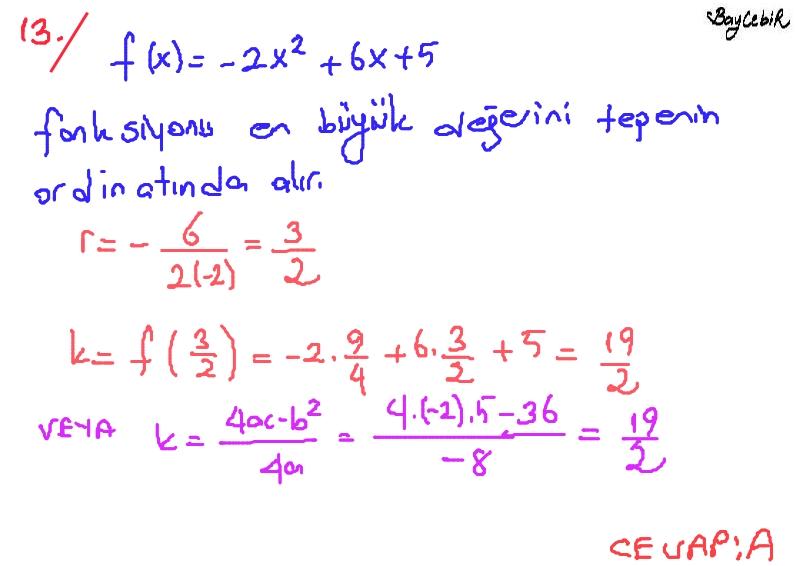 BayCebiR
13./ f(x) = -2x² + 6x + 5
fonksiyonu en büyük değerini tepenin
ordinatında alır.
r = - 6/2(-2) = 3/2
k = f(3/2) = -2·9/4 + 6·3/2 + 5 = 19/2
VEYA k = 4ac-b²/4a = 4·(-2)·5-36/-8 = 19/2
CEVAP: A